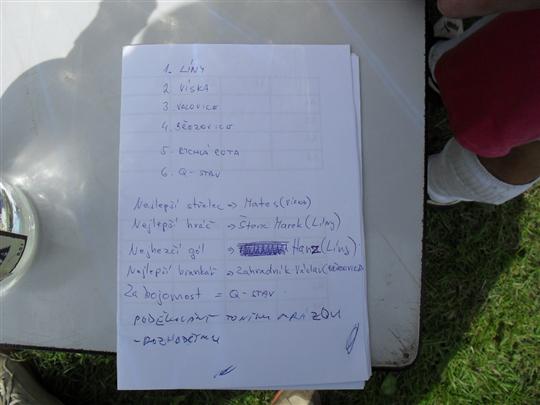 1. LÍNY
2. VÍSKA
3. VOLOVICE
4. BŘEZOVICE
5. RYCHLÁ ROTA
6. Q-STAV
Nejlepší střelec → Mates (VÍSKA)
Nejlepší hráč → Štorc Marek (Líny)
Nejhezčí gól → Hanz (Líny)
Nejlepší brankář → Zahradník Václav (BŘEZOVICE)
Za bojovnost = Q-STAV
PODĚKOVÁNÍ
-ROZHODČÍMU